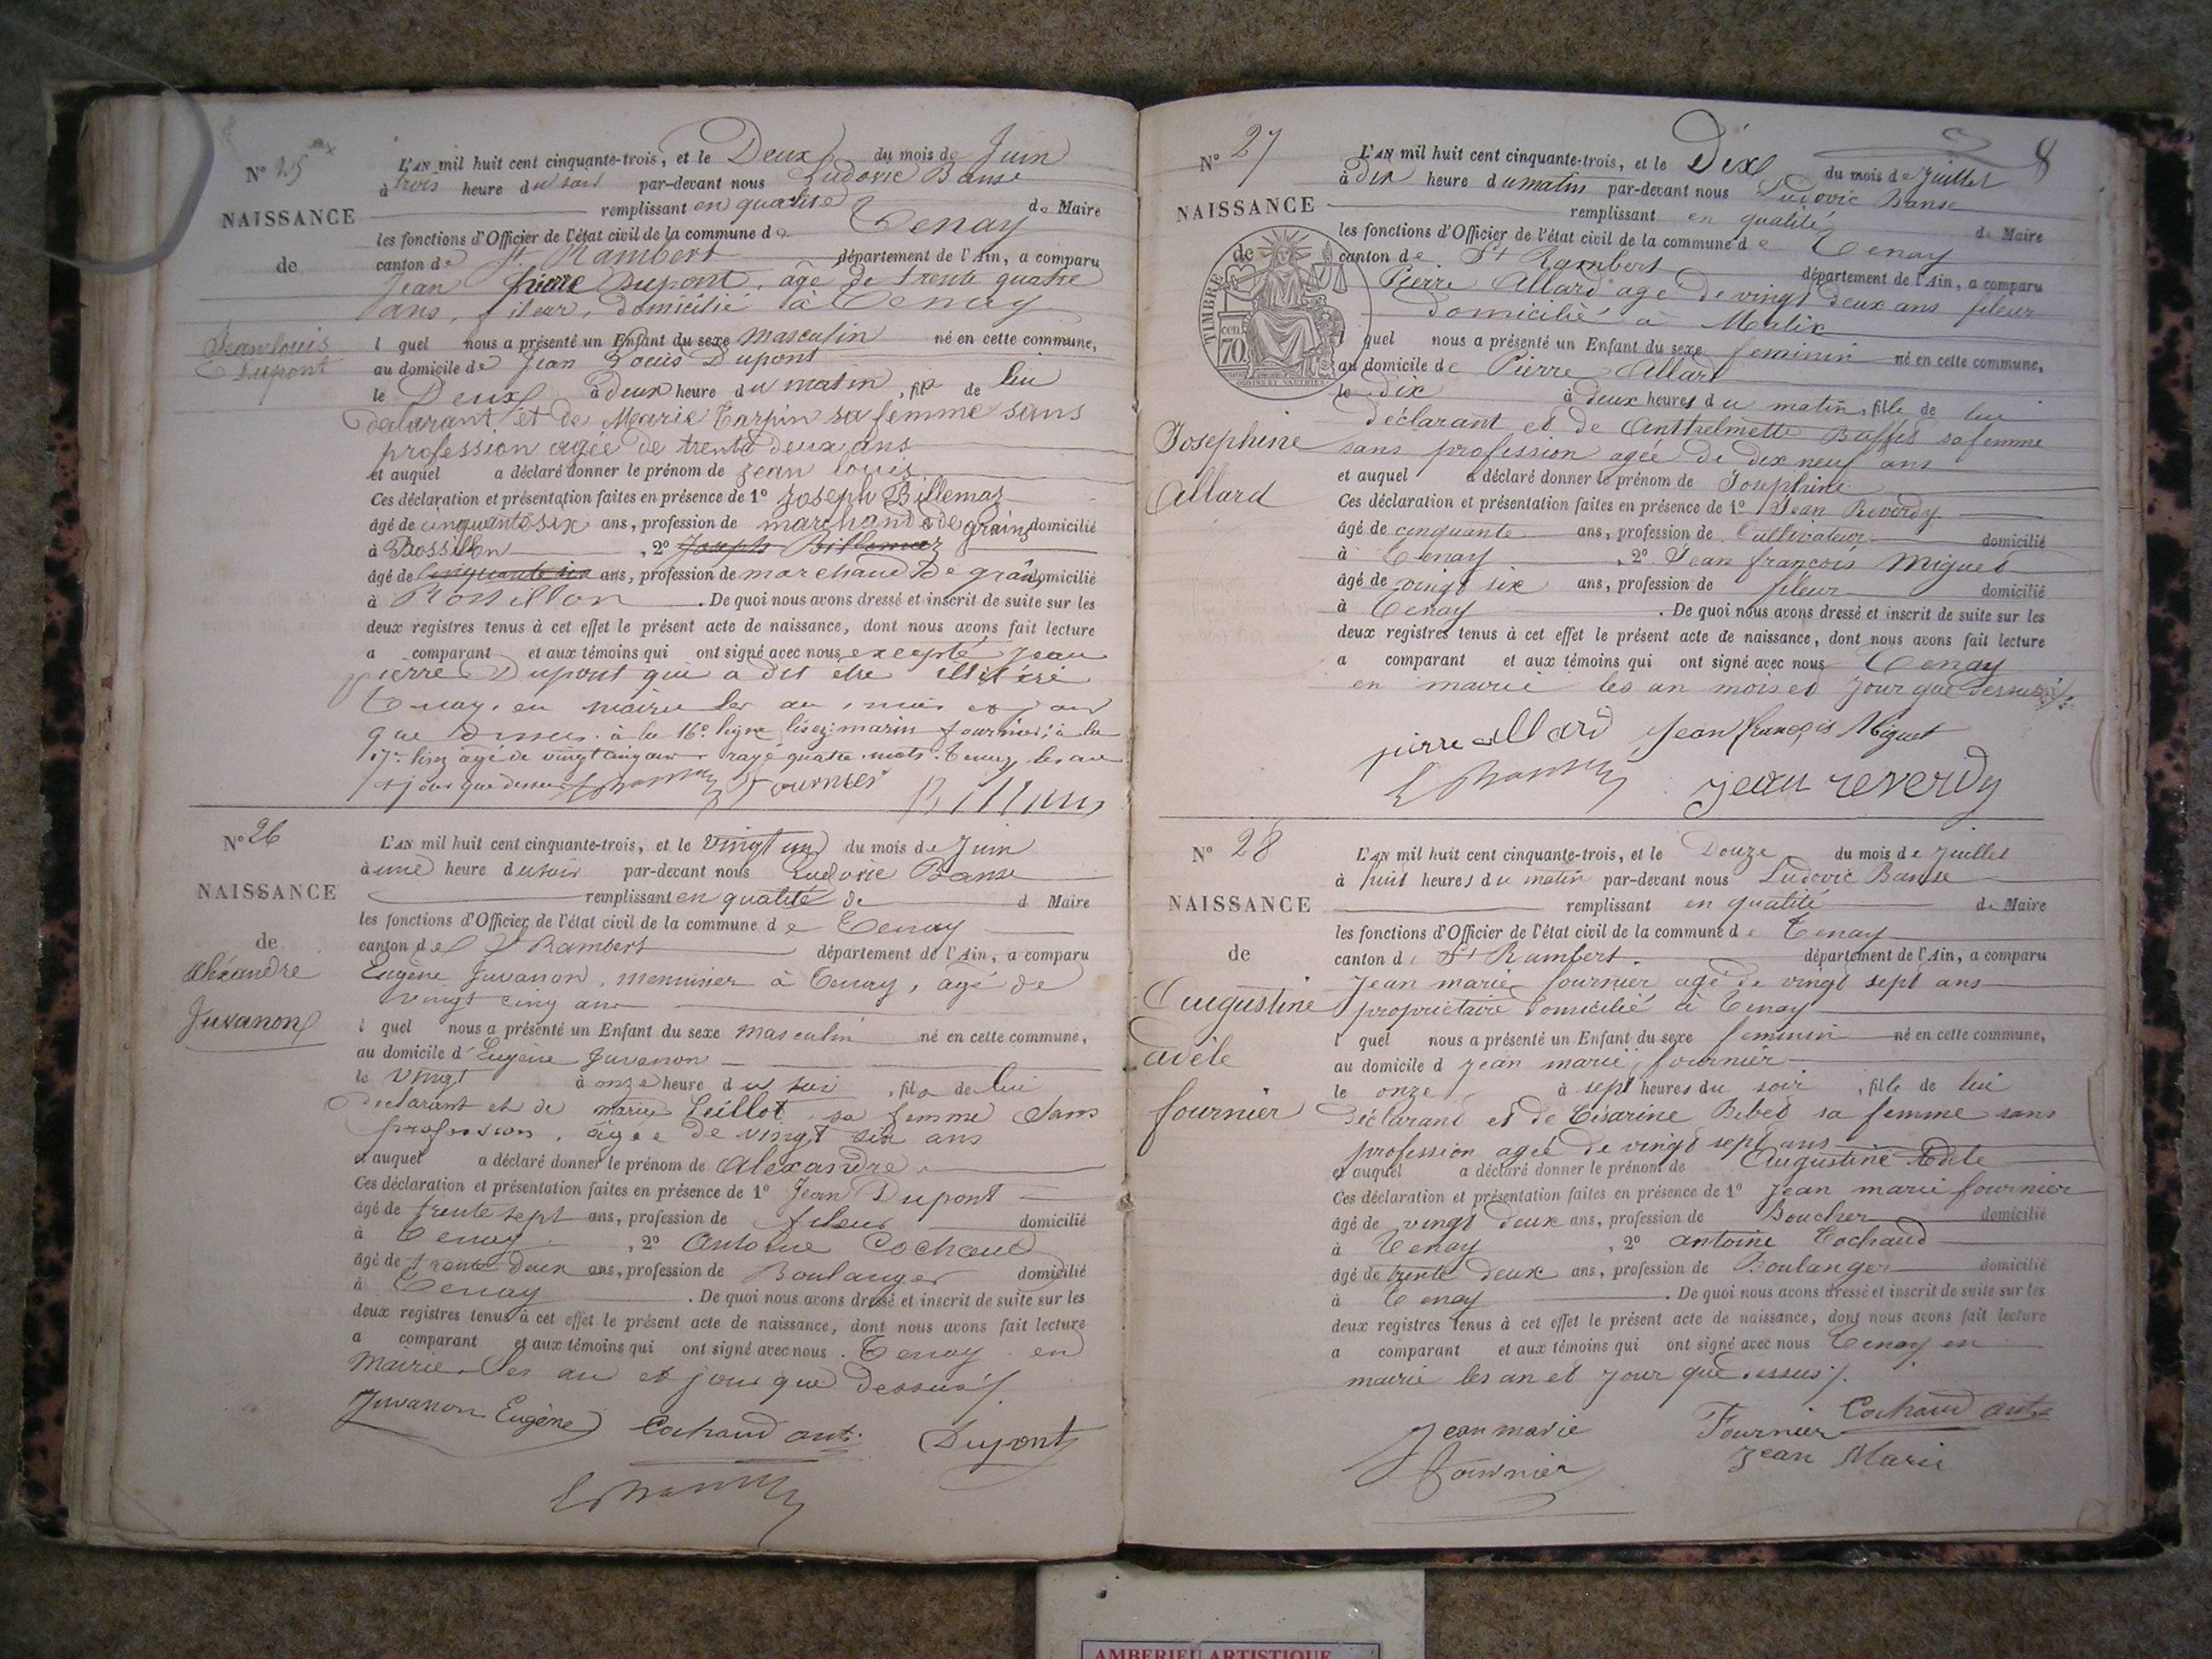 N° 25
NAISSANCE
de
Jean louis
Dupont
L'AN mil huit cent cinquante-trois, et le Deux du mois de Juin
à trois heure du soir par-devant nous Ludovic Banse
remplissant en qualité de Maire
les fonctions d'Officier de l'état civil de la commune de Tenay
canton de St Rambert département de l'Ain, a comparu
Jean pierre Dupont, âgé de trente quatre
ans, fileur, domicilié à Tenay
l quel nous a présenté un Enfant du sexe masculin né en cette commune,
au domicile de Jean Louis Dupont
le Deux à deux heure du matin, fils de lui
déclarant et de Marie Tarpin sa femme sans
profession agée de trente deux ans
et auquel a déclaré donner le prénom de jean louis
Ces déclaration et présentation faites en présence de 1° Joseph Billemaz
âgé de cinquante six ans, profession de marchand de grains domicilié
à Rossillon, 2° Joseph Billemaz
âgé de cinquante six ans, profession de marchand de grains domicilié
à Rossillon. De quoi nous avons dressé et inscrit de suite sur les
deux registres tenus à cet effet le présent acte de naissance, dont nous avons fait lecture
a comparant et aux témoins qui ont signé avec nous excepté Jean
pierre Dupont qui a dit être illitéré
Tenay, en mairie les an, mois et jour
que dessus. à la 16e ligne lisez: marin fournier; à la
17e lisez âgé de vingt cinq ans rayé quatre mots. Tenay les an
et jour que dessus Fournier
N° 26
NAISSANCE
de
Aléxandre
Juvanon
L'AN mil huit cent cinquante-trois, et le vingt un du mois de Juin
à une heure du soir par-devant nous Ludovic Banse
remplissant en qualité de d Maire
les fonctions d'Officier de l'état civil de la commune de Tenay
canton de St Rambert département de l'Ain, a comparu
Eugène Juvanon, menuisier à Tenay, agé de
vingt cinq ans
l quel nous a présenté un Enfant du sexe masculin né en cette commune,
au domicile d'Eugène Juvanon
le vingt à onze heure du soir, fils de lui
declarant et de marie Leillot sa femme sans
profession, âgée de vingt six ans
et auquel a déclaré donner le prénom de alexandre
Ces déclaration et présentation faites en présence de 1° Jean Dupont
âgé de trente sept ans, profession de fileur domicilié
à Tenay, 2° Antoine Cochaud
âgé de trente deux ans, profession de Boulanger domicilié
à Tenay. De quoi nous avons dressé et inscrit de suite sur les
deux registres tenus à cet effet le présent acte de naissance, dont nous avons fait lecture
a comparant et aux témoins qui ont signé avec nous. Tenay en
Mairie. les an et jour que dessus
Juvanon Eugène Cochaud ant. Dupont
8
N° 27
NAISSANCE
de
TIMBRE
cen
70
Josephine
Allard
L'AN mil huit cent cinquante-trois, et le Dix du mois de juillet
à dix heure du matin par-devant nous Ludovic Banse
remplissant en qualité de Maire
les fonctions d'Officier de l'état civil de la commune de Tenay
canton de St Rambert département de l'Ain, a comparu
Pierre Allard agé de vingt deux ans fileur
domicilié à Malix
l quel nous a présenté un Enfant du sexe feminin né en cette commune,
au domicile de Pierre Allard
le dix à deux heures du matin, fille de lui
déclarant et de Anthelmette Buffet sa femme
sans profession agée de dix neuf ans
et auquel a déclaré donner le prénom de Josephine
Ces déclaration et présentation faites en présence de 1° Jean Reverdy
âgé de cinquante ans, profession de Cultivateur domicilié
à Tenay, 2° Jean françois Miguet
âgé de vingt six ans, profession de fileur domicilié
à Tenay. De quoi nous avons dressé et inscrit de suite sur les
deux registres tenus à cet effet le présent acte de naissance, dont nous avons fait lecture
a comparant et aux témoins qui ont signé avec nous Tenay
en mairie les an mois et jour que dessus
pierre allard Jean françois Miguet
jean reverdy
N° 28
NAISSANCE
de
Augustine
adèle
fournier
L'AN mil huit cent cinquante-trois, et le Douze du mois de juillet
à huit heures du matin par-devant nous Ludovic Banse
remplissant en qualité de Maire
les fonctions d'Officier de l'état civil de la commune de Tenay
canton d St Rambert. département de l'Ain, a comparu
Jean marie fournier agé de vingt sept ans
propriétaire domicilié à Tenay
l quel nous a présenté un Enfant du sexe feminin né en cette commune,
au domicile d jean marie fournier
le onze à sept heures du soir, fille de lui
déclarant et de Césarine Bibet sa femme sans
profession agée de vingt sept ans
et auquel a déclaré donner le prénom de Augustine Adele
Ces déclaration et présentation faites en présence de 1° jean marie fournier
âgé de vingt deux ans, profession de Boucher domicilié
à Tenay, 2° antoine Cochaud
âgé de trente deux ans, profession de Boulanger domicilié
à Tenay. De quoi nous avons dressé et inscrit de suite sur les
deux registres tenus à cet effet le présent acte de naissance, dont nous avons fait lecture
a comparant et aux témoins qui ont signé avec nous Tenay en
mairie les an et jour que dessus
Jean marie Fournier Cochaud ant
fournier Jean Marie
AMBERIEU ARTISTIQUE